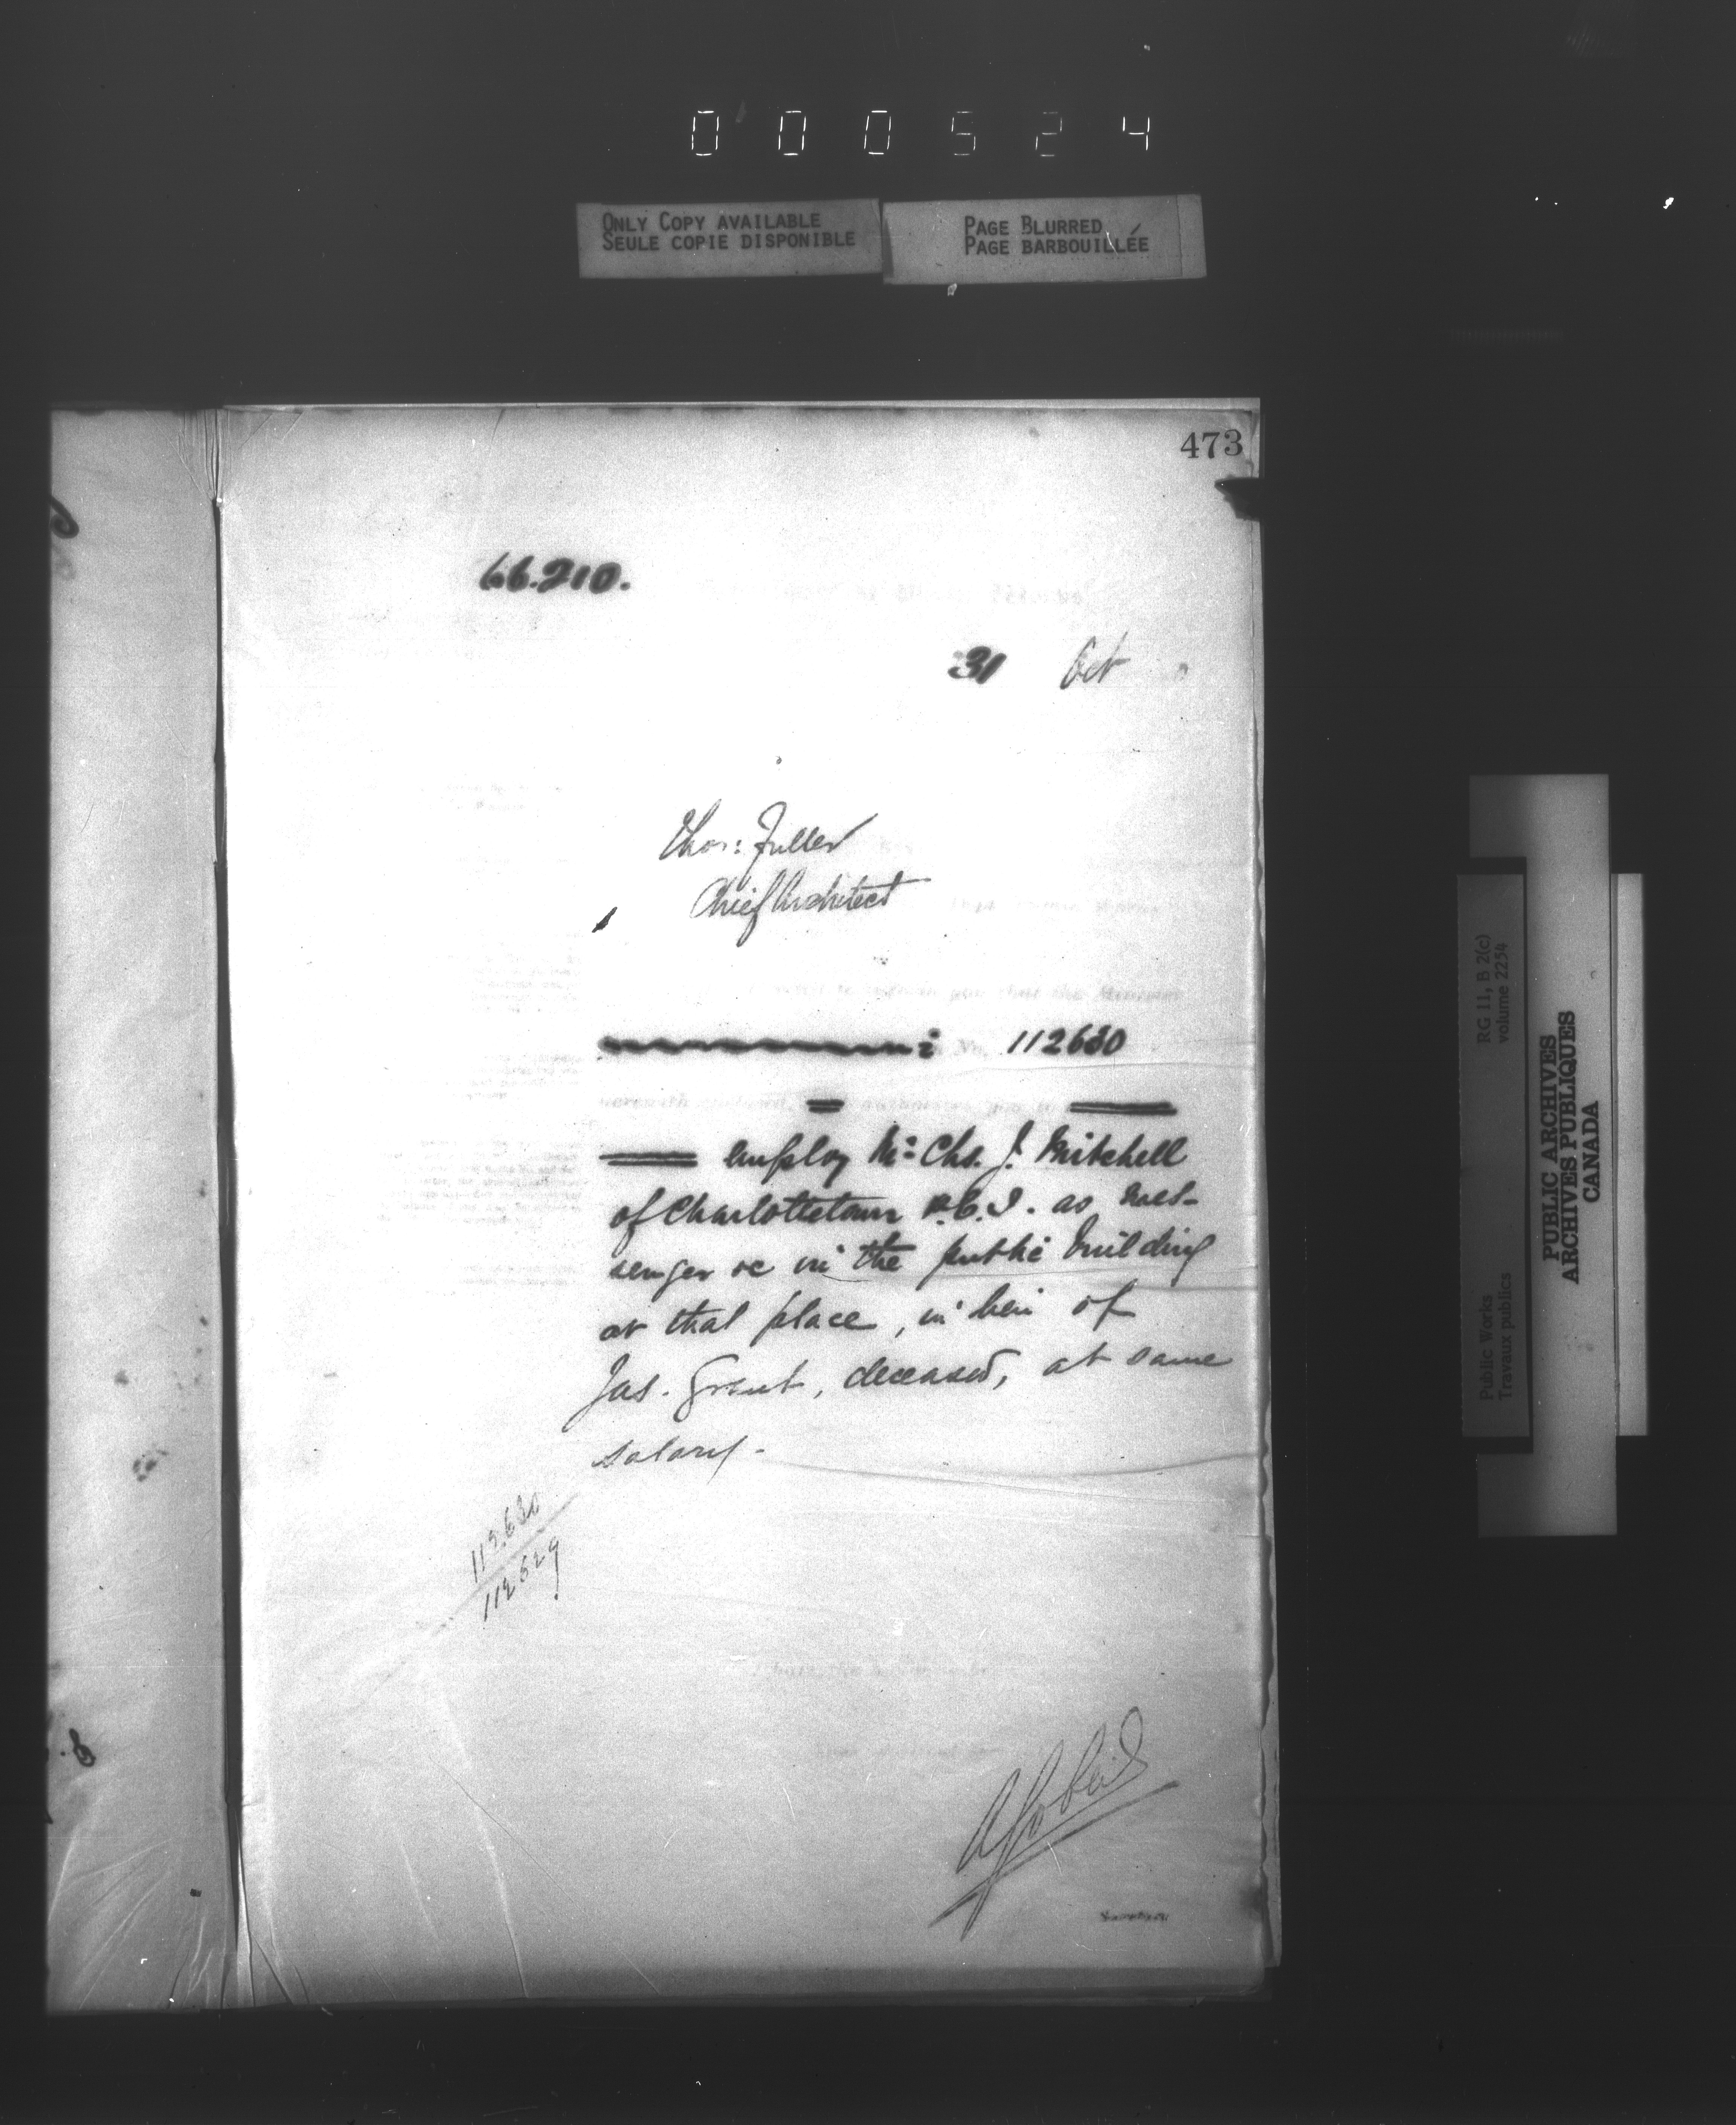 000524
ONLY COPY AVAILABLE
SEULE COPIE DISPONIBLE
PAGE BLURRED
PAGE BARBOUILLÉE
473
66.210.
31 Oct
Thos: Fuller
Chief Architect
112630
employ Mr Chs. J. Mitchell
of Charlottetown P.E.I. as mes-
senger &c in the public building
at that place, in lieu of
Jas. Grant, deceased, at same
salary -
112.630
112629
RG 11, B 2(c)
volume 2254
Public Works
Travaux publics
PUBLIC ARCHIVES
ARCHIVES PUBLIQUES
CANADA